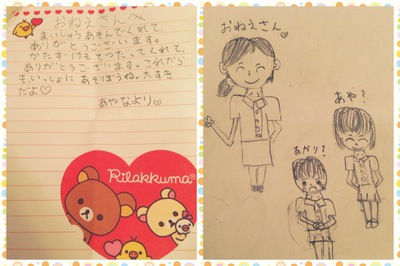 おねえさんへ
まいしゅうあそんでくれて、
ありがとうございます。
かたずけもてつだってくれて、
ありがとうございます。これから
もいっしょにあそぼうね。大すき
だよ♡
あやなより♡
Rilakkuma®
おねえさん♡
あや?
あかり?